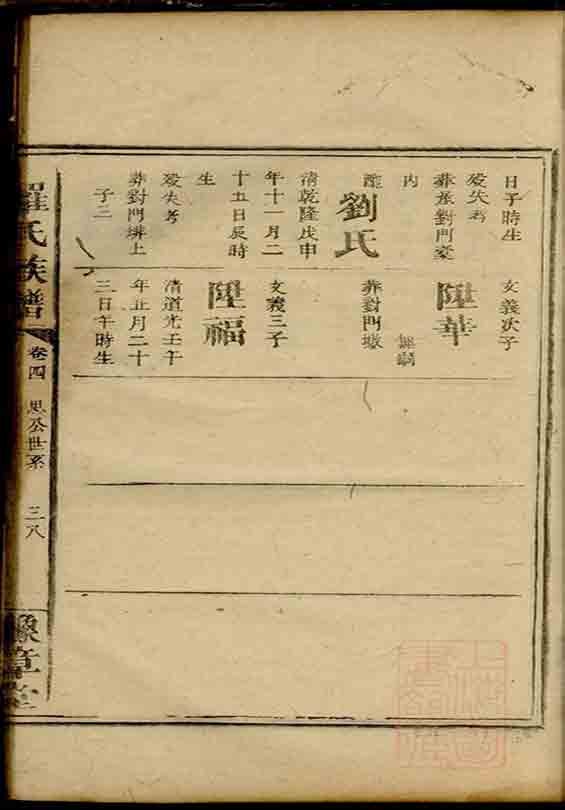 日子時生
歿失考
葬茶對門豪
內
配
劉氏
清乾隆戊申
年十一月二
十五日辰時
生
歿失考
葬對門塝上
子三
文義次子
陞華
無嗣
葬對門墩
文義三子
陞福
清道光壬午
年正月二十
三日午時生
羅氏族譜
卷四
思公世系
三八
豫章堂